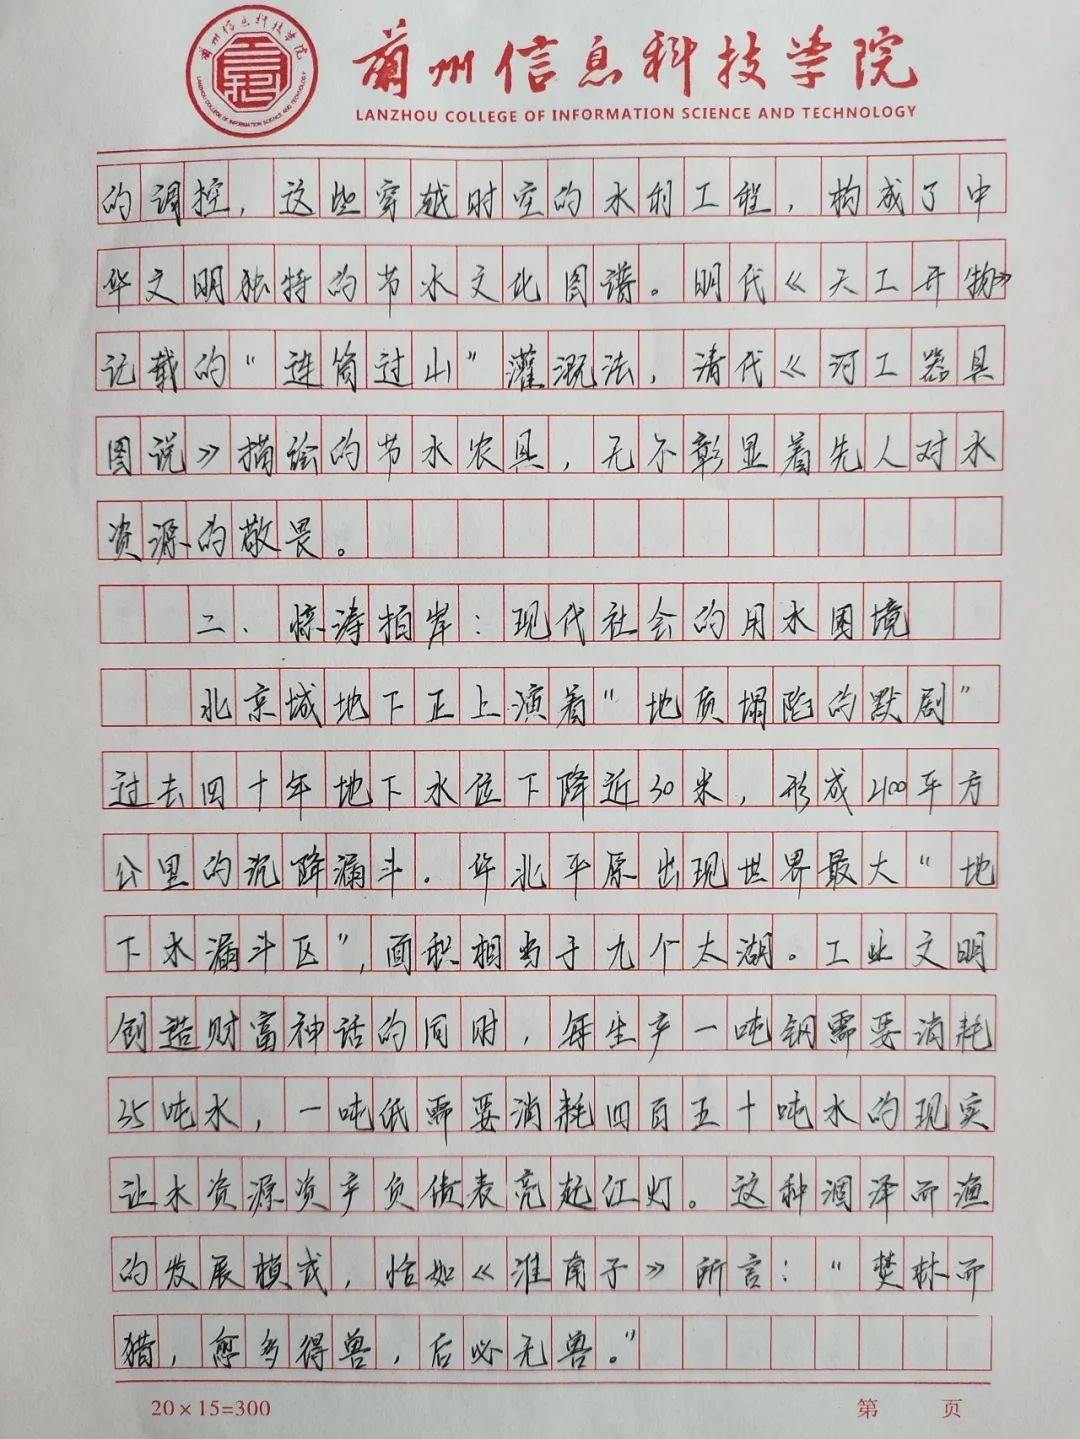 兰州信息科技学院
兰州信息科技学院
LANZHOU COLLEGE OF INFORMATION SCIENCE AND TECHNOLOGY
LANZHOU COLLEGE OF INFORMATION SCIENCE AND TECHNOLOGY
的调控，这些穿越时空的水利工程，构成了中
华文明独特的节水文化图谱。明代《天工开物》
记载的“连筒过山”灌溉法，清代《河工器具
图说》描绘的节水农具，无不彰显着先人对水
资源的敬畏。
二、惊涛拍岸：现代社会的用水困境
北京城地下正上演着“地质塌陷的默剧”
过去四十年地下水位下降近30米，形成2100平方
公里的沉降漏斗。华北平原出现世界最大“地
下水漏斗区”，面积相当于九个太湖。工业文明
创造财富神话的同时，每生产一吨钢需要消耗
35吨水，一吨纸需要消耗四百五十吨水的现实
让水资源资产负债表亮起红灯。这种涸泽而渔
的发展模式，恰如《淮南子》所言：“焚林而
猎，愈多得兽，后必无兽。”
20×15=300
第 页